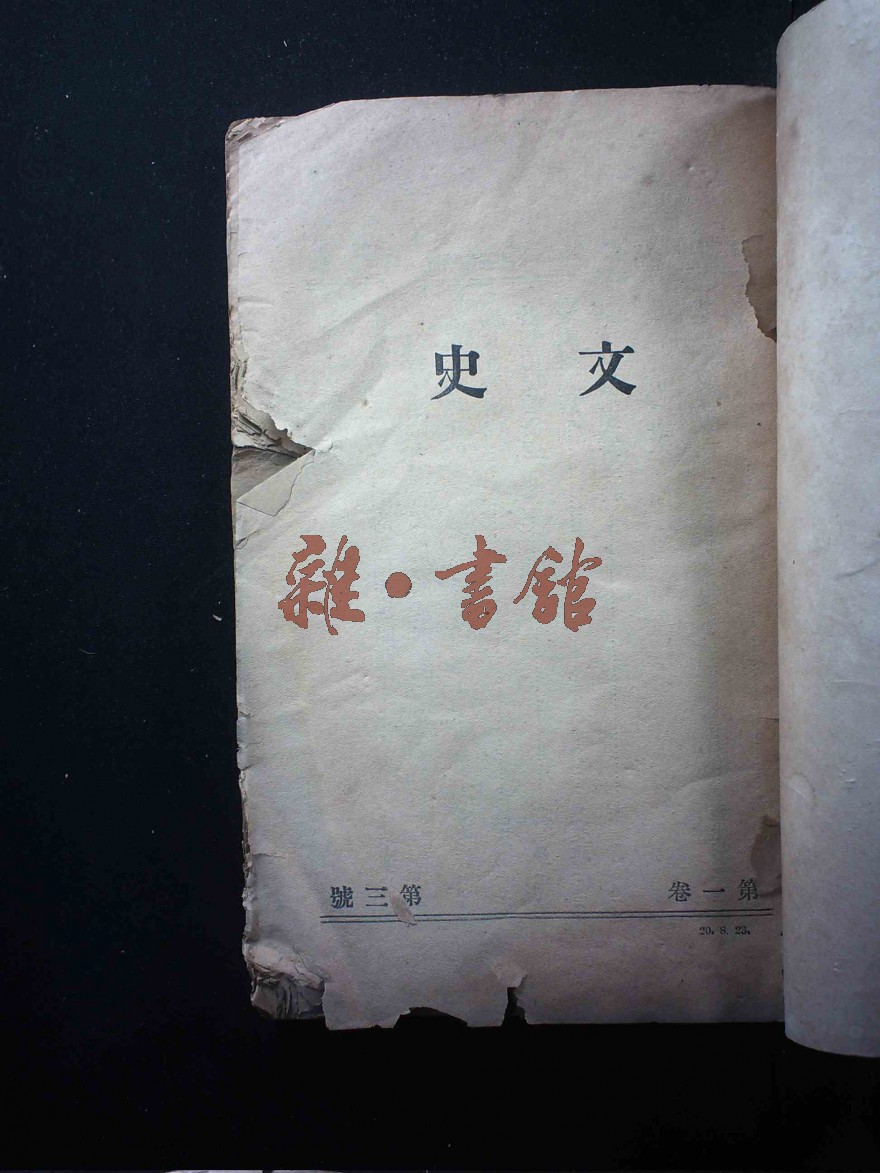 文史
雜·書館
第一卷 第三號
20. 8. 23.